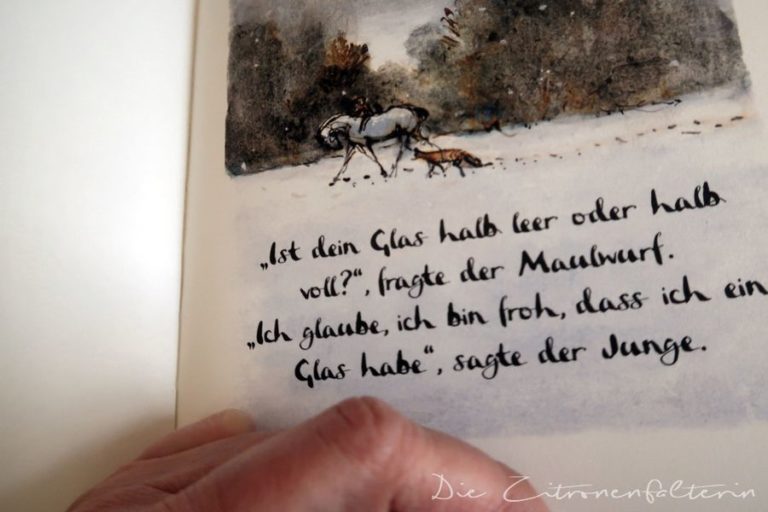 „Ist dein Glas halb leer oder halb
voll?“, fragte der Maulwurf.
„Ich glaube, ich bin froh, dass ich ein
Glas habe“, sagte der Junge.
Die Zitronenfalterin